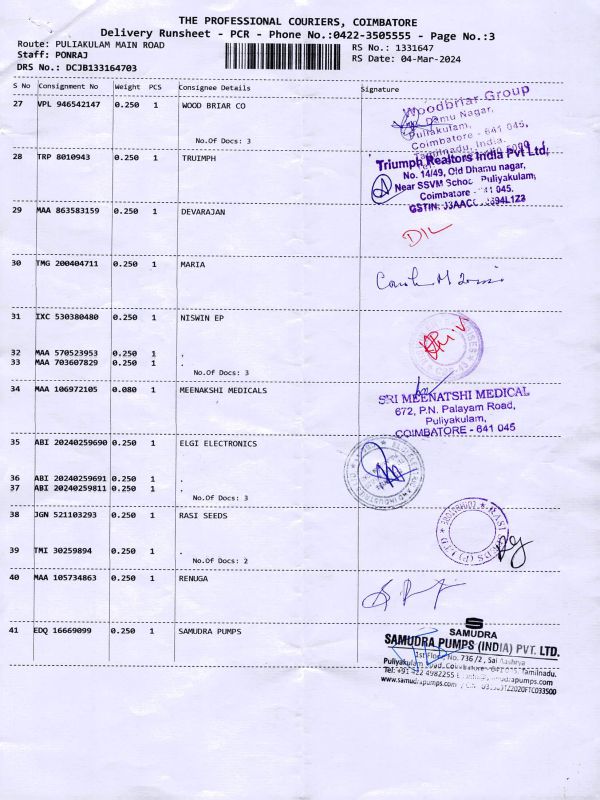 THE PROFESSIONAL COURIERS, COIMBATORE
Delivery Runsheet - PCR - Phone No.:0422-3505555 - Page No.:3
Route: PULIAKULAM MAIN ROAD
RS No.: 1331647
Staff: PONRAJ
RS Date: 04-Mar-2024
DRS No.: DCJB133164703
S No Consignment No Weight PCS Consignee Details Signature
27 VPL 946542147 0.250 1 WOOD BRIAR CO
No.Of Docs: 3
Woodbriar Group
Damu Nagar,
Puliakulam,
Coimbatore - 641 045,
Tamilnadu, India.
28 TRP 8010943 0.250 1 TRUIMPH
Triumph Realtors India Pvt Ltd,
No. 14/49, Old Dhamu nagar,
Near SSVM School Puliyakulam,
Coimbatore - 641 045.
29 MAA 863583159 0.250 1 DEVARAJAN
30 TMG 200404711 0.250 1 MARIA
31 IXC 530380480 0.250 1 NISWIN EP
32 MAA 570523953 0.250 1 .
33 MAA 703607829 0.250 1 .
No.Of Docs: 3
34 MAA 106972105 0.080 1 MEENAKSHI MEDICALS
SRI MEENATSHI MEDICAL
672, P.N. Palayam Road,
Puliyakulam,
COIMBATORE - 641 045
35 ABI 20240259690 0.250 1 ELGI ELECTRONICS
36 ABI 20240259691 0.250 1 .
37 ABI 20240259811 0.250 1 .
No.Of Docs: 3
38 JGN 521103293 0.250 1 RASI SEEDS
39 TMI 30259894 0.250 1 .
No.Of Docs: 2
40 MAA 105734863 0.250 1 RENUGA
41 EDQ 16669099 0.250 1 SAMUDRA PUMPS
S
SAMUDRA
SAMUDRA PUMPS (INDIA) PVT. LTD.
1st Floor, No. 736 /2 , Sai Aashrya